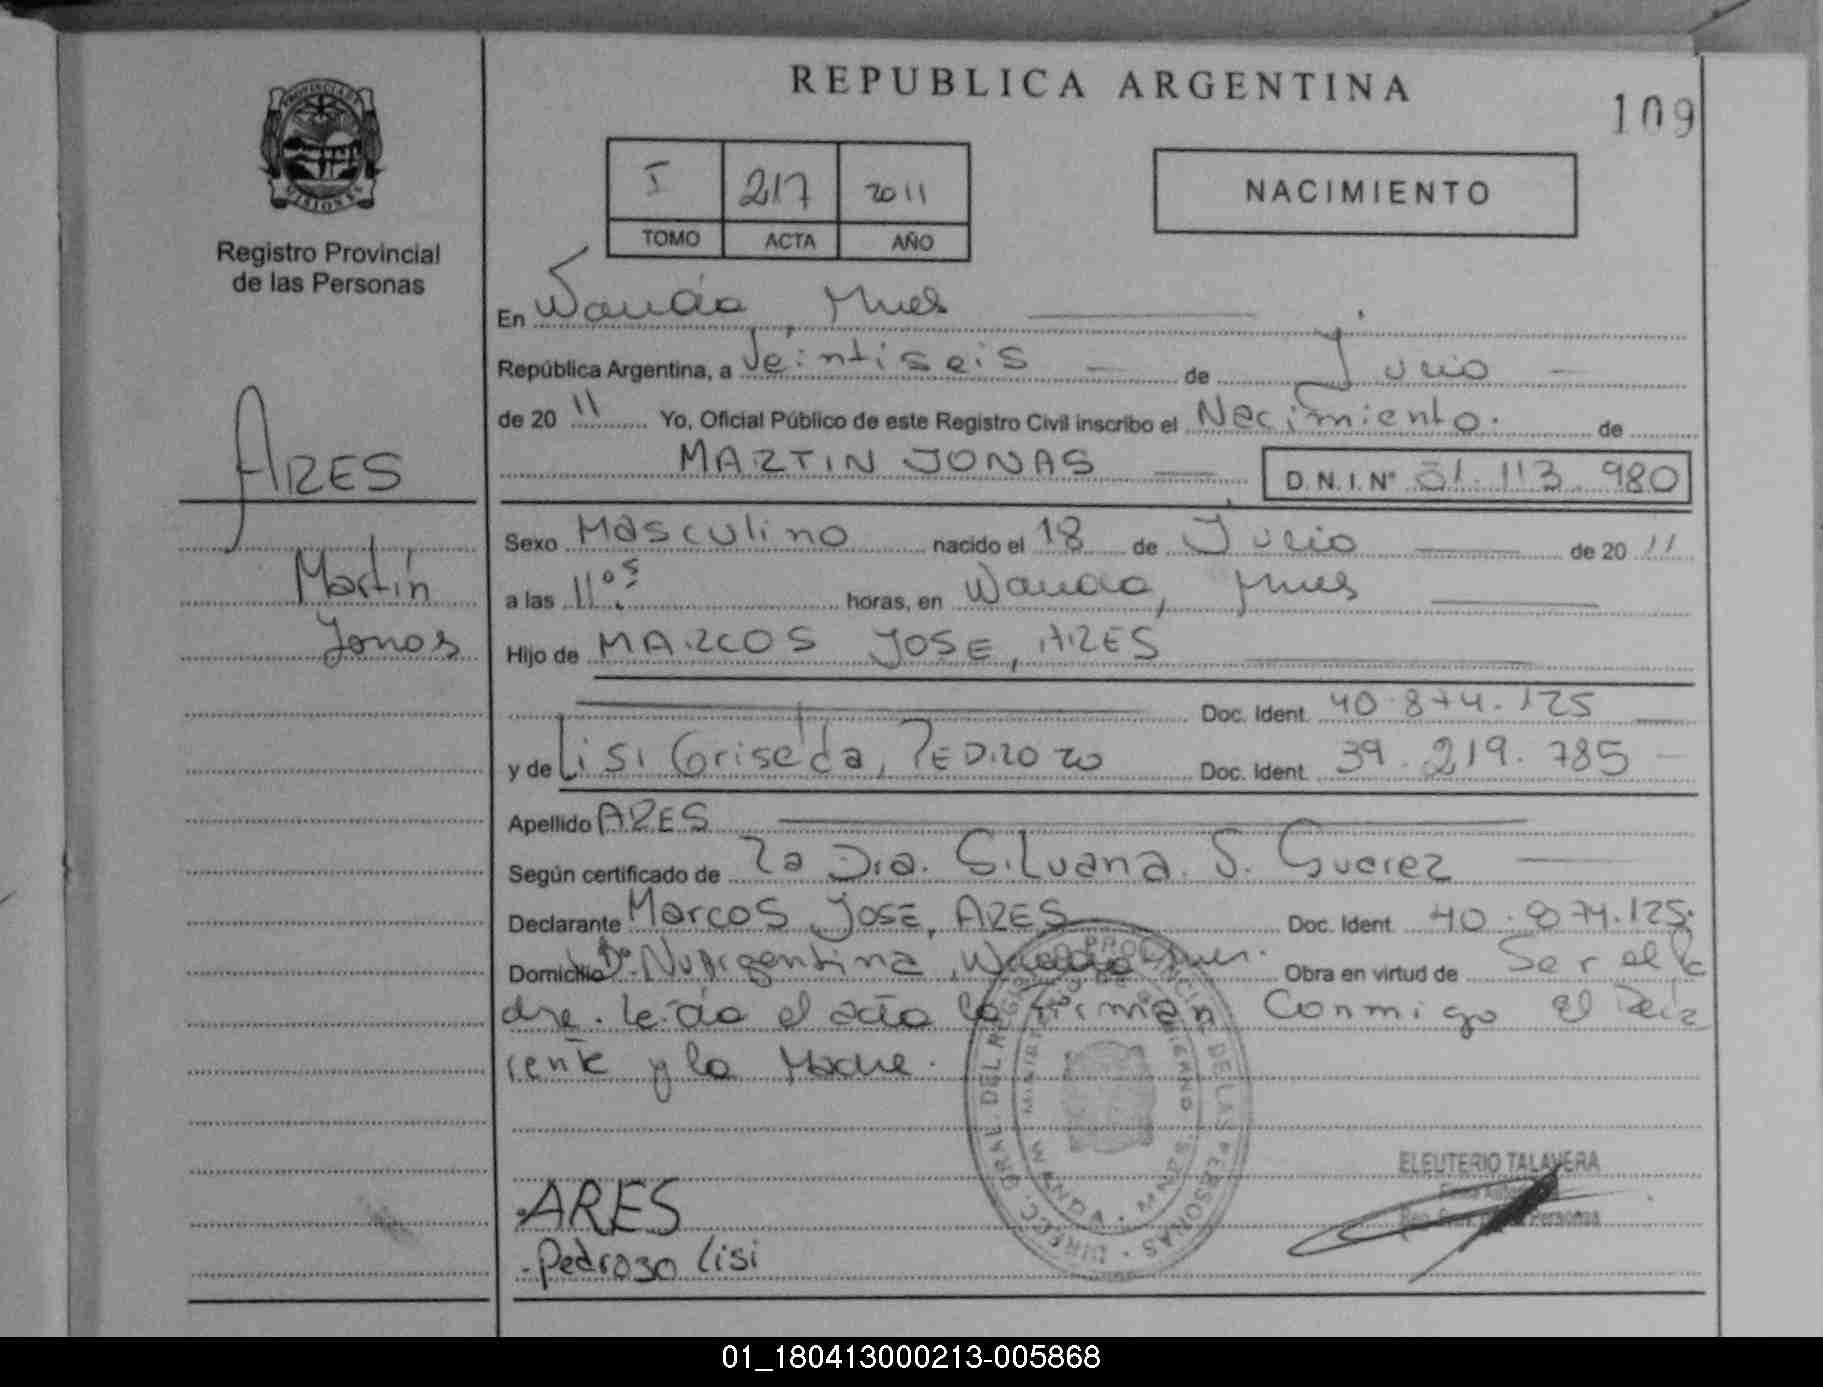 REPUBLICA ARGENTINA
109
PROVINCIA DE MISIONES
Registro Provincial
de las Personas
I 217 2011
TOMO ACTA AÑO
NACIMIENTO
En Wanda, Mnes
República Argentina, a Veintiseis de Julio
de 2011 Yo, Oficial Público de este Registro Civil inscribo el Nacimiento de
MARTIN JONAS D.N.I.Nº 51.113.980
ARES
Martín
Jonas
Sexo Masculino nacido el 18 de Julio de 2011
a las 11:05 horas, en Wanda, Mnes
Hijo de MARCOS JOSE, ARES
Doc. Ident. 40.874.125
y de Lisi Griselda, PEDROZO Doc. Ident. 39.219.785
Apellido ARES
Según certificado de la Dra. Silvana S. Suarez
Declarante Marcos JOSE, ARES Doc. Ident. 40.874.125
Domicilio Bº Nu Argentina, Wanda Mnes. Obra en virtud de Ser el Pa
dre. Leída el acta la firman Conmigo el Decla
rente y la Madre.
DIRECC. GRAL. DEL REGISTRO PROVINCIAL DE LAS PERSONAS
MINISTERIO DE GOBIERNO
WANDA - MNES
ELEUTERIO TALAVERA
ARES
Pedrozo Lisi
01_180413000213-005868